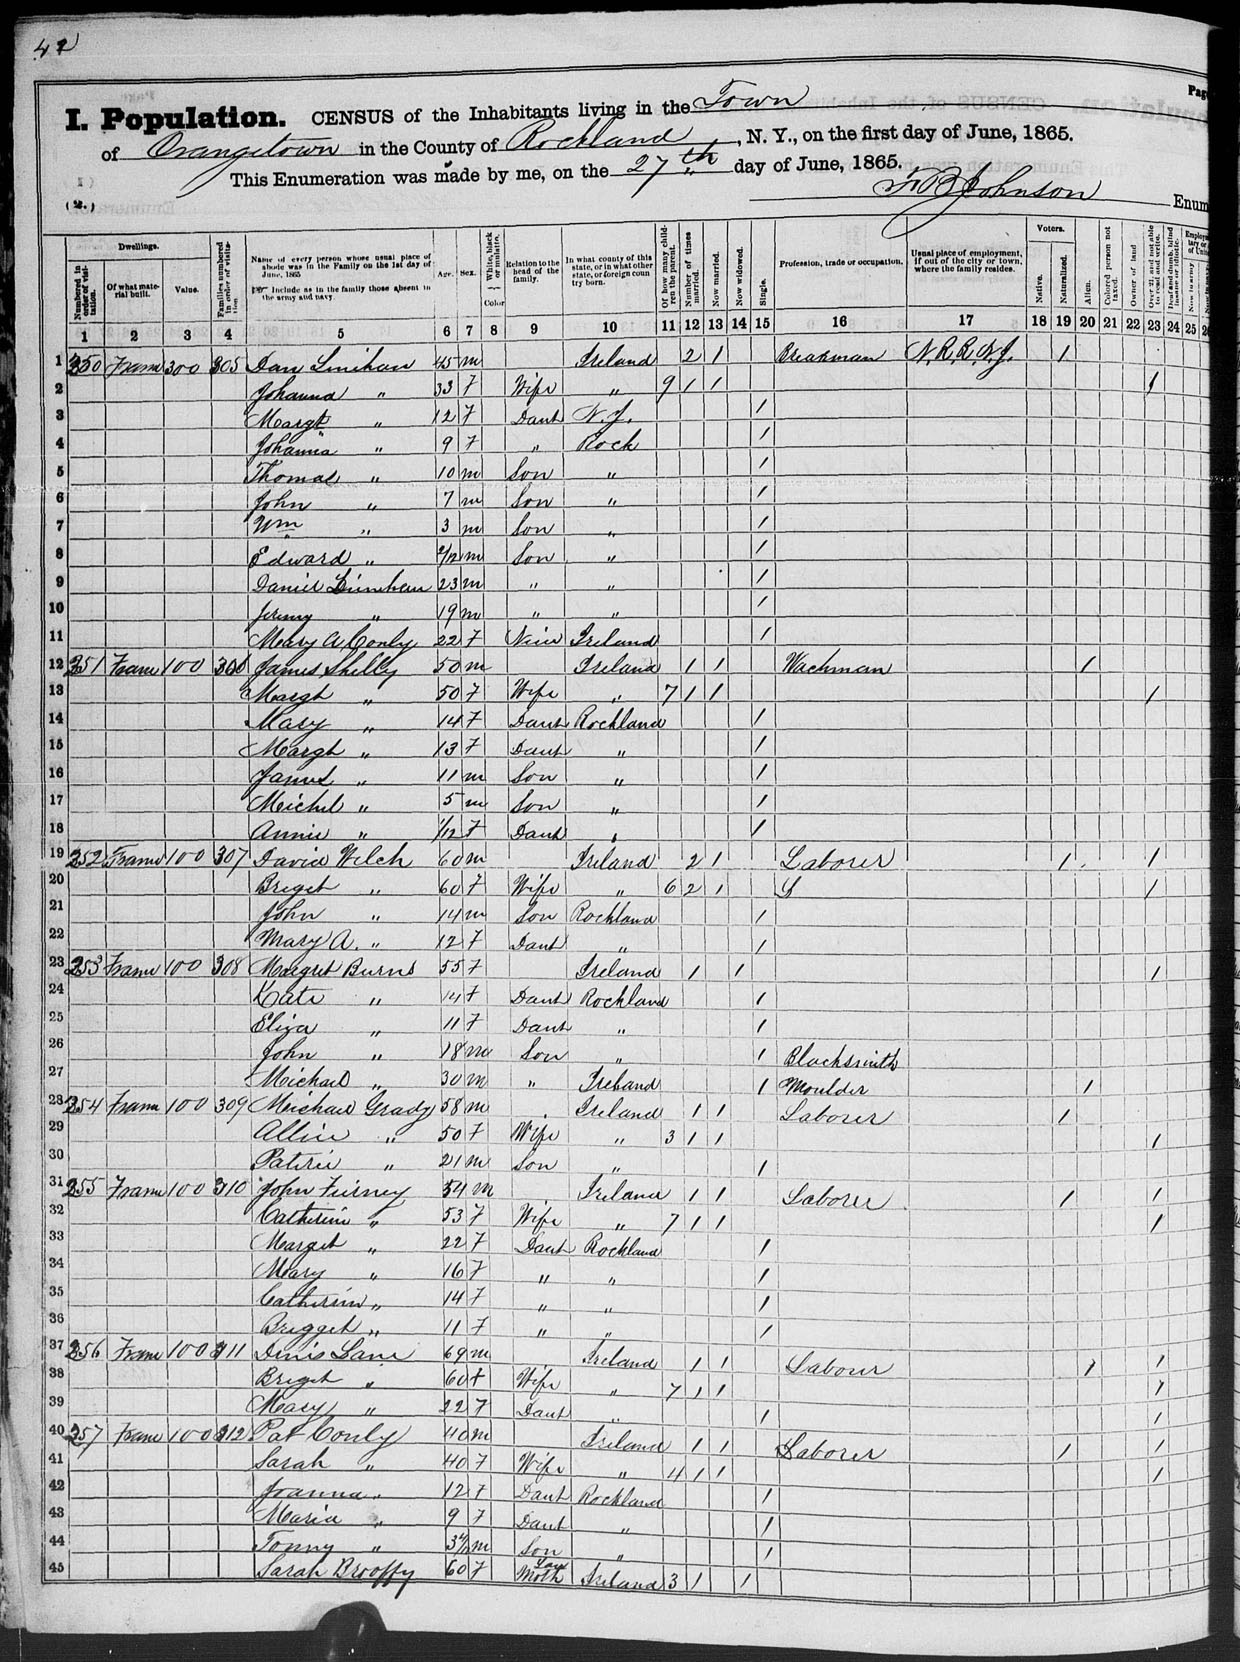 42
Page
I. Population. CENSUS of the Inhabitants living in the Town
of Orangetown in the County of Rockland, N. Y., on the first day of June, 1865.
This Enumeration was made by me, on the 27th day of June, 1865.
(2.) Johnson Enum
Dwellings. Voters.
Numbered in order of visitation. Of what material built. Value. Families numbered in order of visitation Name of every person whose usual place of abode was in the Family on the 1st day of June, 1865 Include as in the family those absent in the army and navy. Age. Sex. White, black or mulatto. Color Relation to the head of the family. In what county of this state, or in what other state, or foreign country born. Of how many children the parent. Number of times married. Now married. Now widowed. Single. Profession, trade or occupation. Usual place of employment, if out of the city or town, where the family resides. Native. Naturalized. Alien. Colored person not taxed. Owner of land Over 21, and not able to read and write. Deaf and dumb, blind insane or idiotic.
1 2 3 4 5 6 7 8 9 10 11 12 13 14 15 16 17 18 19 20 21 22 23 24 25
1 350 Frame 300 305 Dan Linihan 45 m Ireland 2 1 Breakman N.R.R. N.J. 1
2 Johanna " 33 F Wife " 9 1 1 1
3 Margt " 12 F Daut N.J. 1
4 Johanna " 9 F " Rock 1
5 Thomas " 10 m Son " 1
6 John " 7 m Son " 1
7 Wm " 3 m Son " 1
8 Edward " 2/12 m Son " 1
9 Daniel Linihan 23 m " " 1
10 Jerimy " 19 m " " 1
11 Mary A Conly 22 F Niece Ireland 1
12 351 Frame 100 306 James Shelly 50 m Ireland 1 1 Wachman 1
13 Margt " 50 F Wife " 7 1 1 1
14 Mary " 14 F Daut Rockland 1
15 Margt " 13 F Daut " 1
16 James " 11 m Son " 1
17 Michel " 5 m Son " 1
18 Annie " 1/12 F Daut " 1
19 352 Frame 100 307 David Welch 60 m Ireland 2 1 Laborer 1 1
20 Briget " 60 F Wife " 6 2 1 1
21 John " 14 m Son Rockland 1
22 Mary A. " 12 F Daut " 1
23 353 Frame 100 308 Margret Burns 55 F Ireland 1 1 1
24 Kate " 14 F Daut Rockland 1
25 Eliza " 11 F Daut " 1
26 John " 18 m Son " 1 Blacksmith
27 Michael " 30 m " Ireland 1 Moulder 1
28 354 Frame 100 309 Michael Grady 58 m Ireland 1 1 Laborer 1
29 Allice " 50 F Wife " 3 1 1 1
30 Patric " 21 m Son " 1
31 355 Frame 100 310 John Furney 54 m Ireland 1 1 Laborer 1 1
32 Catherine " 53 F Wife " 7 1 1 1
33 Marget " 22 F Daut Rockland 1
34 Mary " 16 F " " 1
35 Catherine " 14 F " " 1
36 Brigget " 11 F " " 1
37 356 Frame 100 311 Denis Lane 69 m Ireland 1 1 Labour 1 1
38 Briget " 60 F Wife " 7 1 1 1
39 Mary " 22 F Daut " 1 1
40 357 Frame 100 312 Pat Conly 40 m Ireland 1 1 Laborer 1 1
41 Sarah " 40 F Wife " 4 1 1 1
42 Joanna " 12 F Daut Rockland 1
43 Maria " 9 F Daut " 1
44 Tonny " m Son " 1
45 Sarah Brooffy 60 F Moth Law Ireland 3 1 1